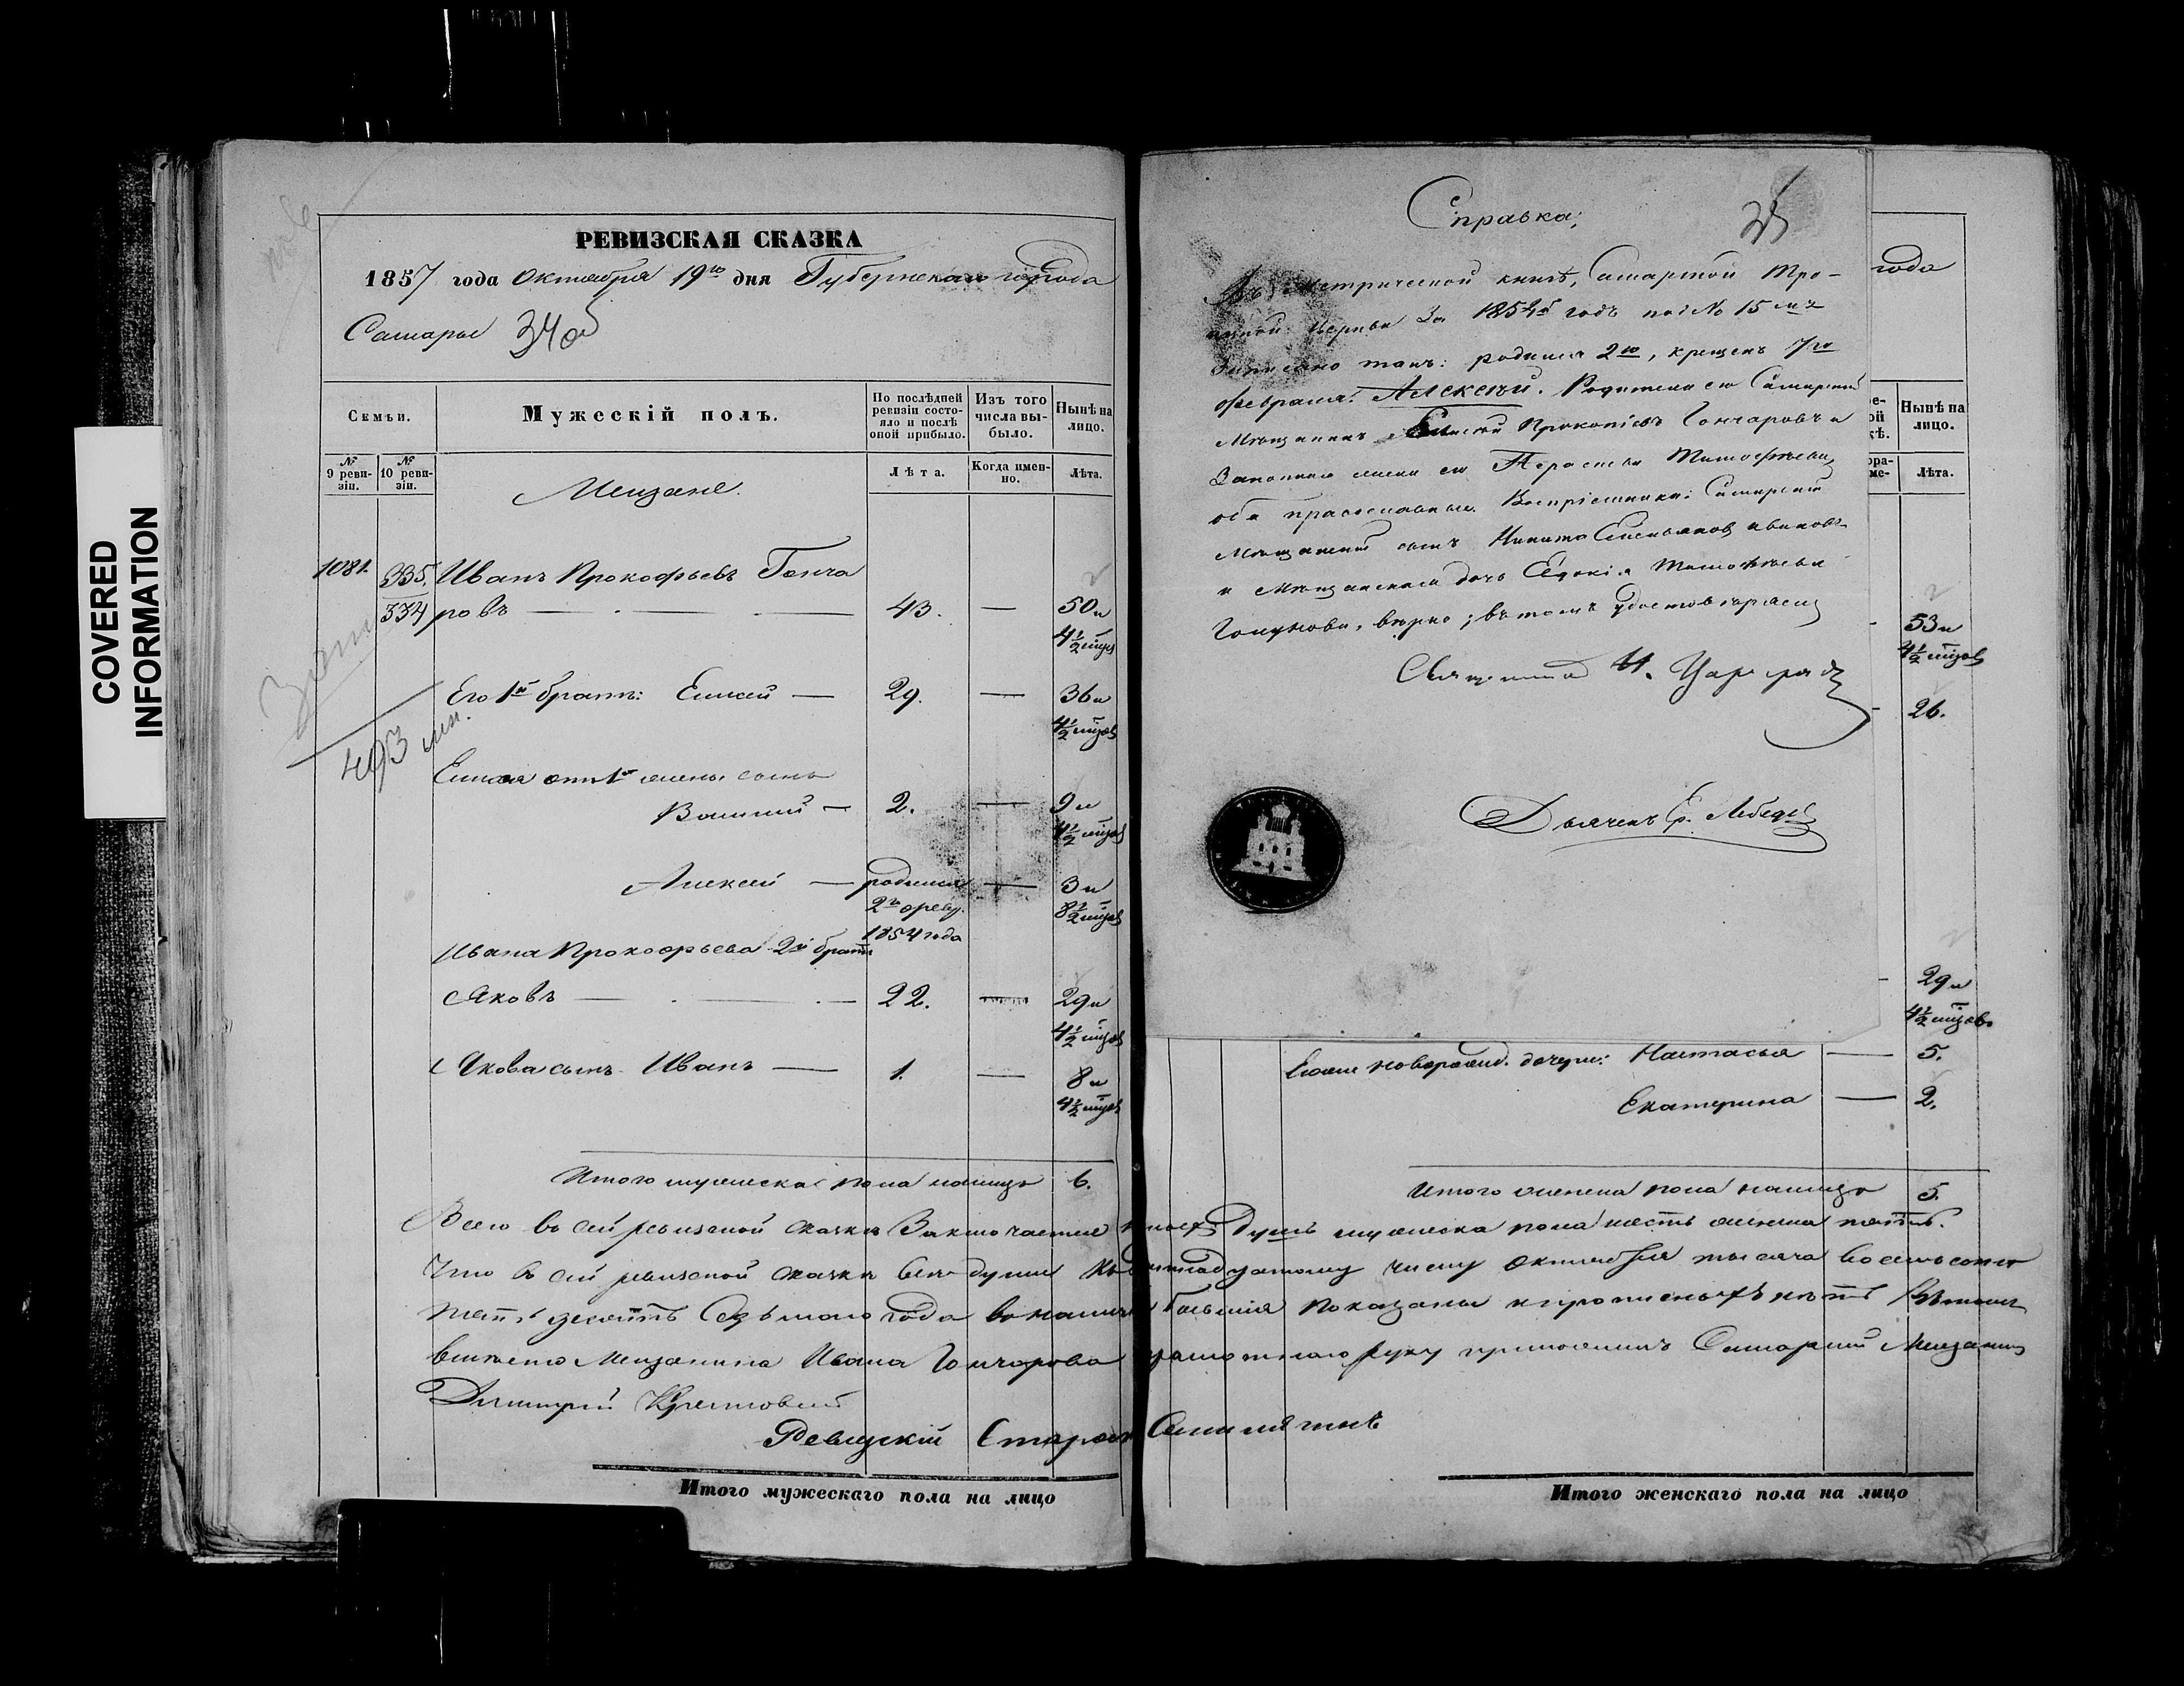 COVERED
INFORMATION
РЕВИЗСКАЯ СКАЗКА
1857 года Октября 19го дня Губернскаго города
Самары 34 об
Семьи.
Мужескій полъ.
По послѣдней ревизіи состояло и послѣ оной прибыло.
Изъ того числа выбыло.
Нынѣ на лицо.
№ 9 ревизіи.
№ 10 ревизіи.
Лѣта.
Когда именно.
Лѣта.
Мещане.
1081. 335. Иванъ Прокофьевъ Гонча
334 ровъ — 43. — 50 и
4½ мѣцов
Его 1й братъ: Елисей — 29. — 36 и
4½ мѣцов
493
Елисея отъ 1й жены сынъ
Василий — 2. — 9 и
4½ мѣцов
Алексей — родился — 3 и
2го февр. 8½ мѣцов
1854 года
Ивана Прокофьева 2й братъ
Яковъ — 22. — 29 и
4½ мѣцов
Якова сынъ Иванъ — 1. — 8 и
4½ мѣцов
Итого мужеска пола налицо 6.
Справка;
35
Въ метрической книгѣ, Самарской Тро-
ицкой церкви за 1854й годъ под № 15 мъ
записано такъ: родился 2го, крещенъ 7го
февраля: Алексѣй. Родители его Самарский
Мѣщанинъ Елисей Прокопіевъ Гончаровъ и
Законная жена его Параскева Тимофѣева,
оба православные. Воспріемники: Самарский
Мѣщанский сынъ Никита
и Мѣщанская дочь Евдокія Тимофѣева
вѣрно; въ томъ удостовѣряемъ
Священникъ И.
Дьяченъ Лебедев
года
Нынѣ на лицо.
Лѣта.
53 и
4½ мѣцов
26.
29 и
4½ мѣцов
Ево же новорожд. дочери: Настасья — 5.
Екатерина — 2.
Итого женска пола налицо 5.
Всего въ сей ревизской сказкѣ Заключается душъ мужеска пола шесть женска пять.
Что въ сей ревизской сказкѣ все души къ числу Октября тысяча восемьсот
пятьдесятъ Седьмаго года в наличи бывшія показаны и прописныхъ нѣтъ Въ томъ
вместо Мещанина Ивана Гончарова руку приложилъ Самарский Мещанинъ
Дмитрий
Ревизскій Староста
Итого мужескаго пола на лицо
Итого женскаго пола на лицо